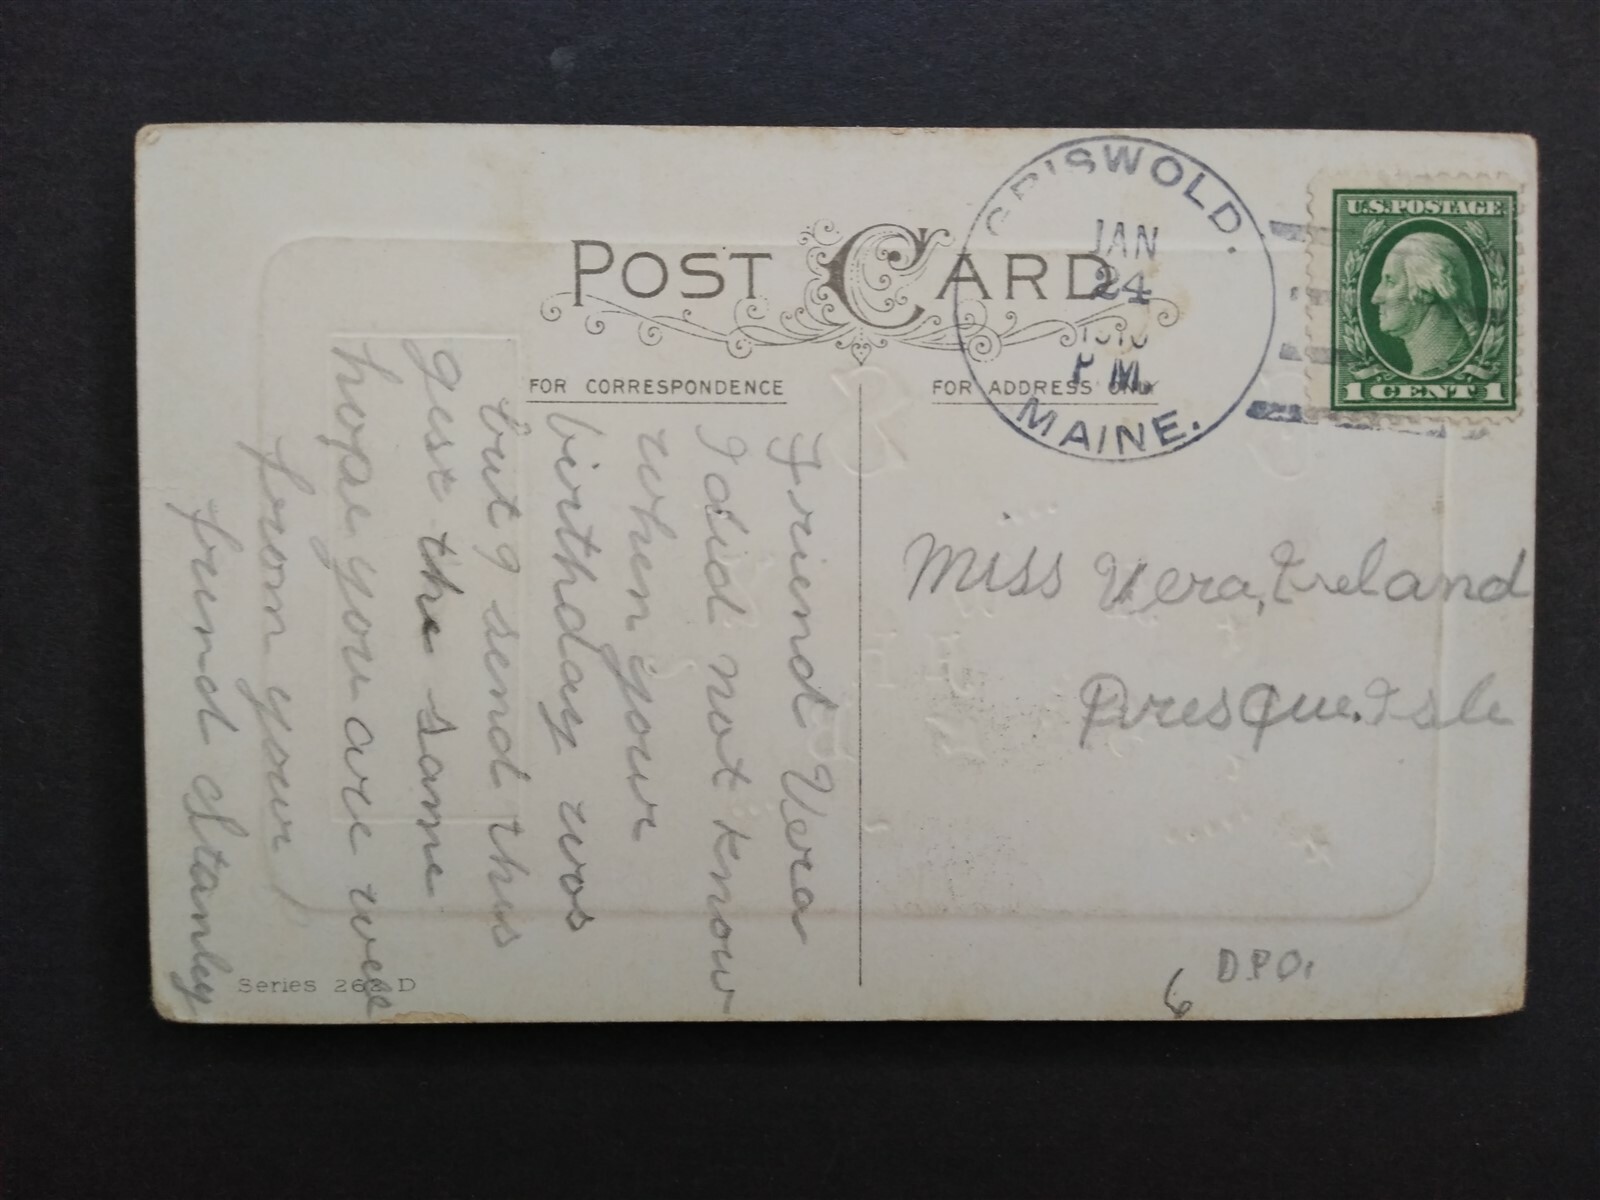 POST CARD
FOR CORRESPONDENCE
FOR ADDRESS ONLY
GRISWOLD.
JAN
24
P.M.
MAINE.
U.S. POSTAGE
1 CENT 1
Friend Vera
I did not know
when your
birthday wos
but I send this
gust the same
hope you are well
from your
frund Stanley
Miss Vera, Ireland
Presque. Isle
D.P.O.
6
Series 263 D